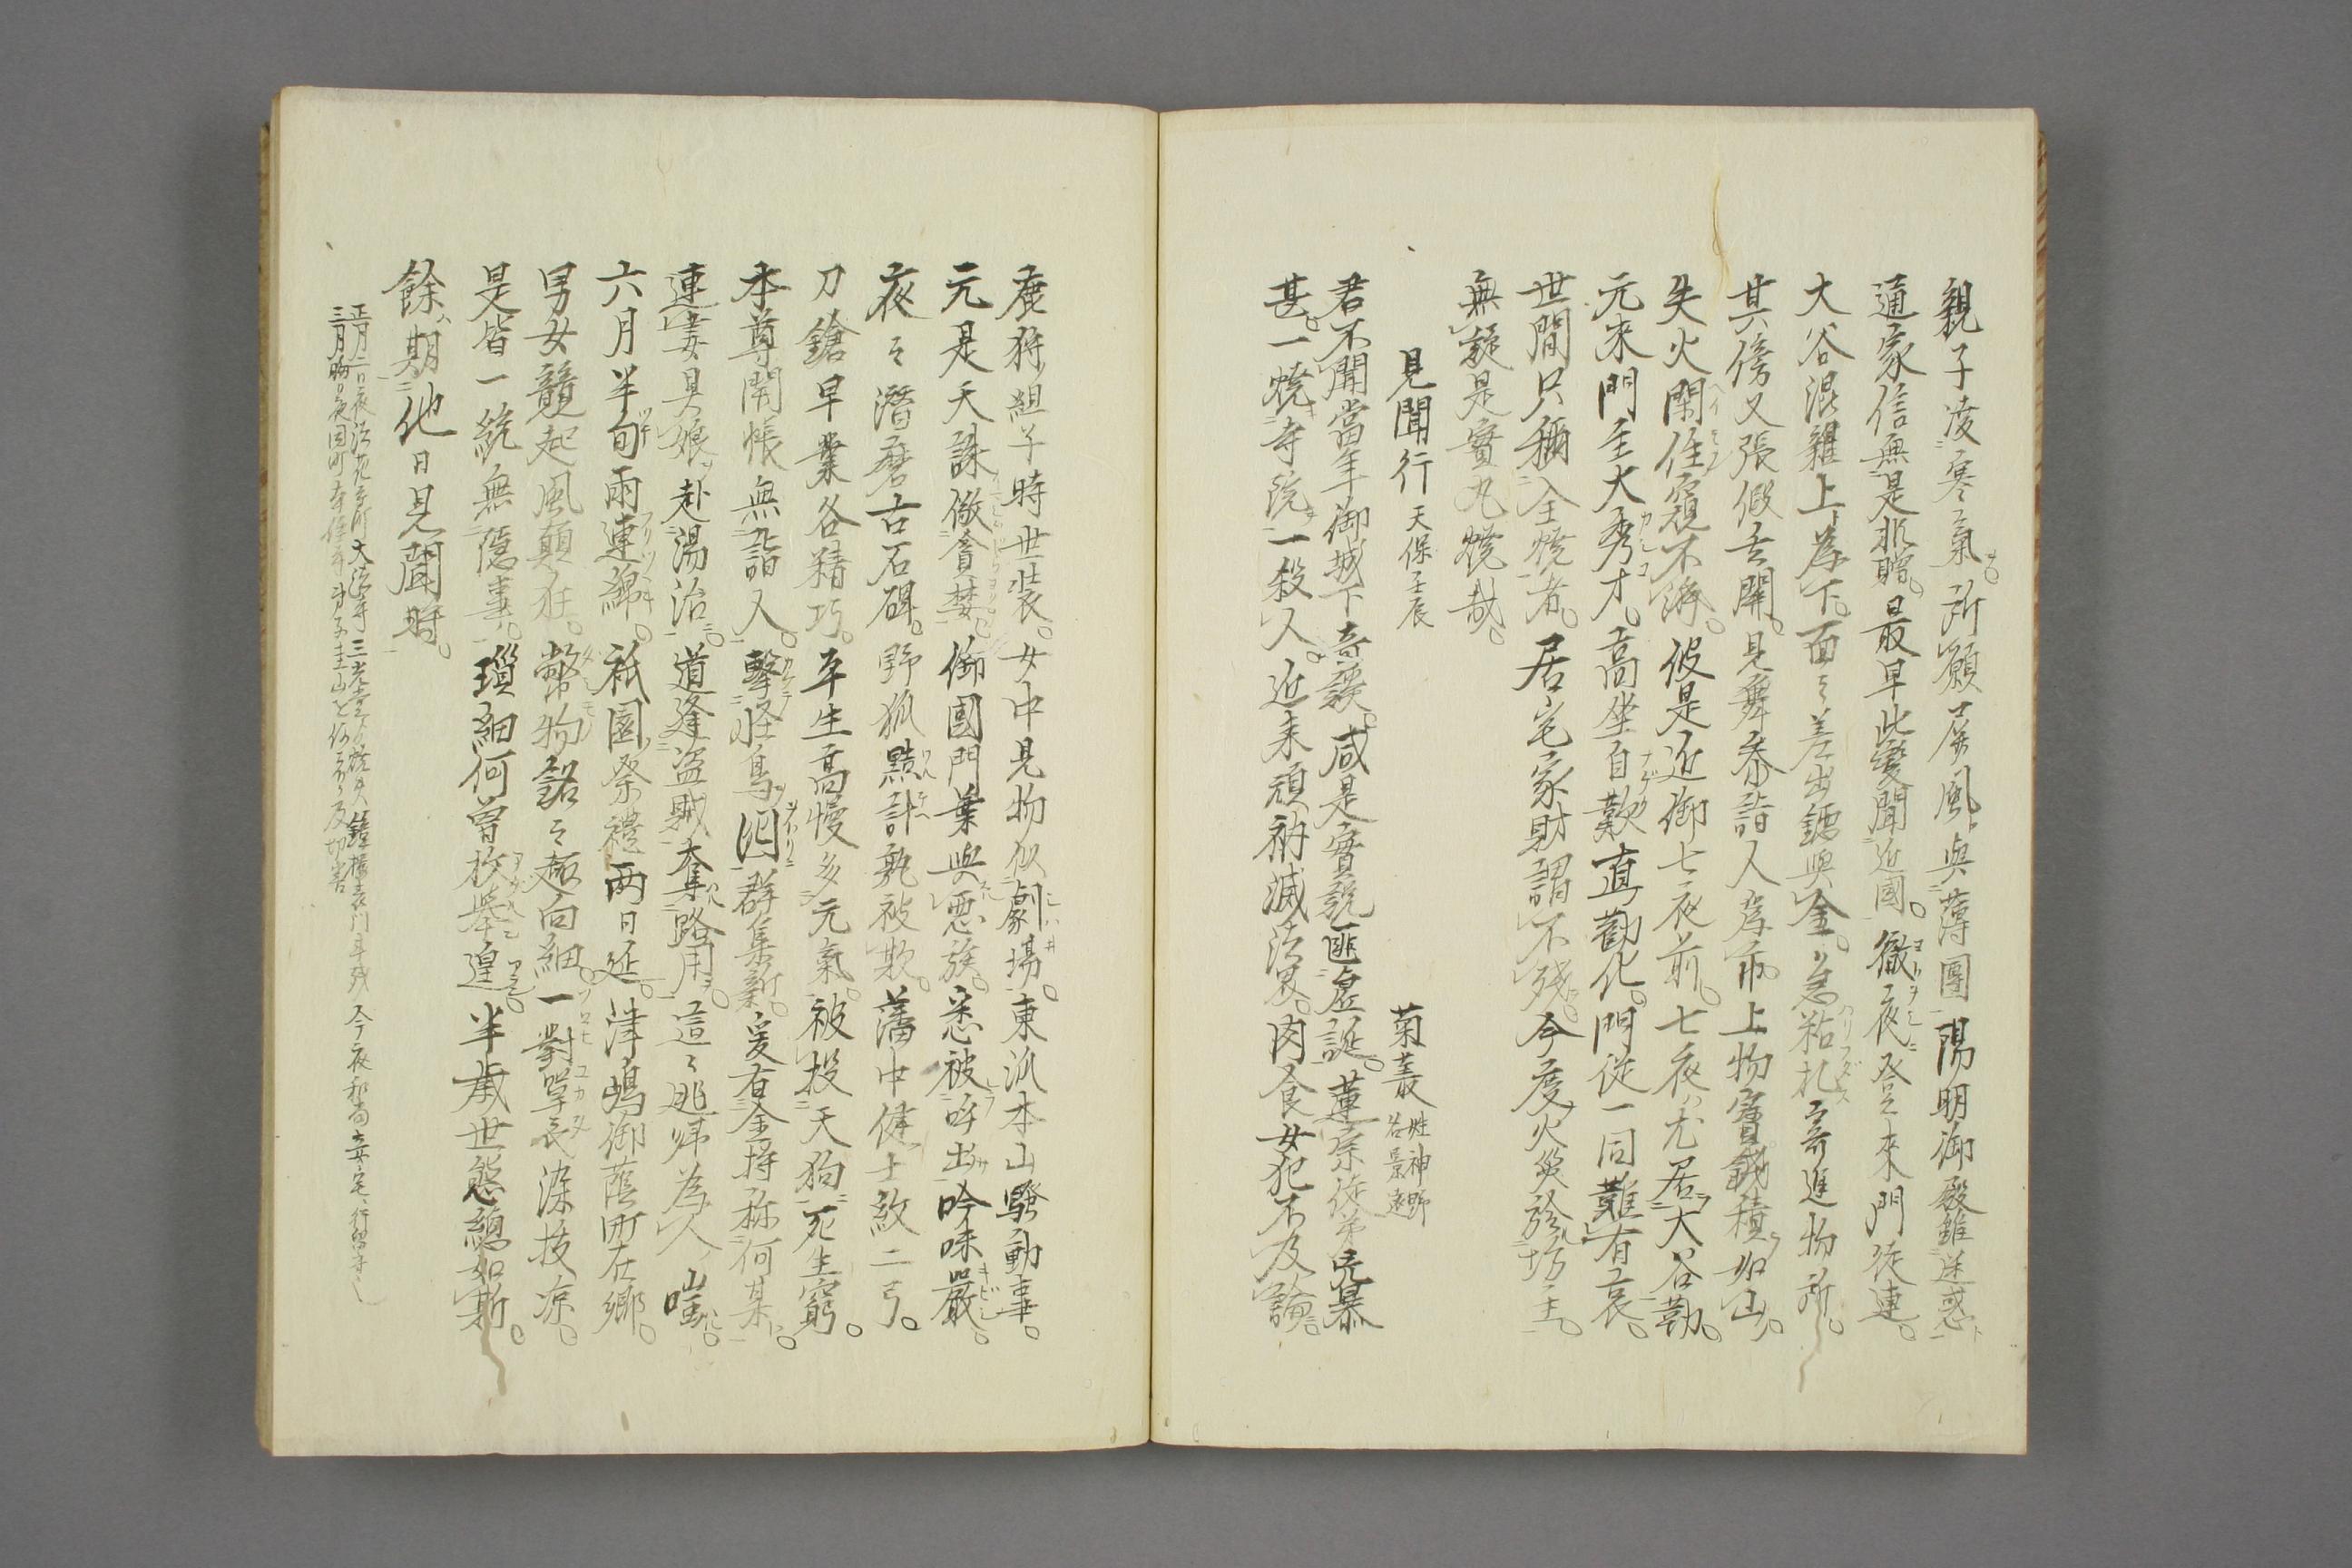 親子凌寒氣。所願屏風與薄團。陽明御殿雖迷惑
通家信無是非贈。最早此變聞近國。徹夜登來門徒連。
大谷混雜上為下。面々差出錢與金。急粘札寄進物所。
其傍又張假玄關。見舞參詣人為市。上物賽錢積如山。
失火閉住寂不濟。彼是近御七夜前。七夜尤居大谷勤。
元來門主大秀才。高坐自歎直勸化。門徒一同難有哀。
世間只稱全燒者。居宅家財謂不殘。今度火災於坊主。
無疑是實丸燒哉。
見聞行 天保壬辰 菊叢 姓神野名景
君不聞當年御城下奇談。咸是實說匪虛誕。蓮宗徒弟
甚。一燒寺院一殺人。近來頑衲滅法界。肉食女犯不及論。
鹿狩組子時世裝。女中見物似劇場。東派本山騷動事。
元是天誅儆貪婪。御國門葉與惡族。悉被呼出吟味嚴。
夜々潛磨古石碑。野狐點計孰被欺。藩中健士放二弓。
刀鎗早業各精巧。平生高慢多元氣。被投天狗死生窮。
本尊開帳無詣人。擊怪鳥囮群集新。爰有金持稱何某。
連妻具娘赴湯治。道逢盜賊奪路用。這々逃歸為人嗤。
六月半旬雨連綿。祇園祭禮兩日延。津嶋御蔭所在鄉。
男女競起風顛狂。幣物銘々趣向細。一對單衣染拔涼。
是皆一統無隱事。瑣細何曾枚舉遑。半歲世態總如斯。
餘期他日見聞時。
正月二日夜法花寺町大法寺三光堂燒失 鐘樓表門斗殘 今夜和尚妾宅行留守
三月 夜同町本住寺